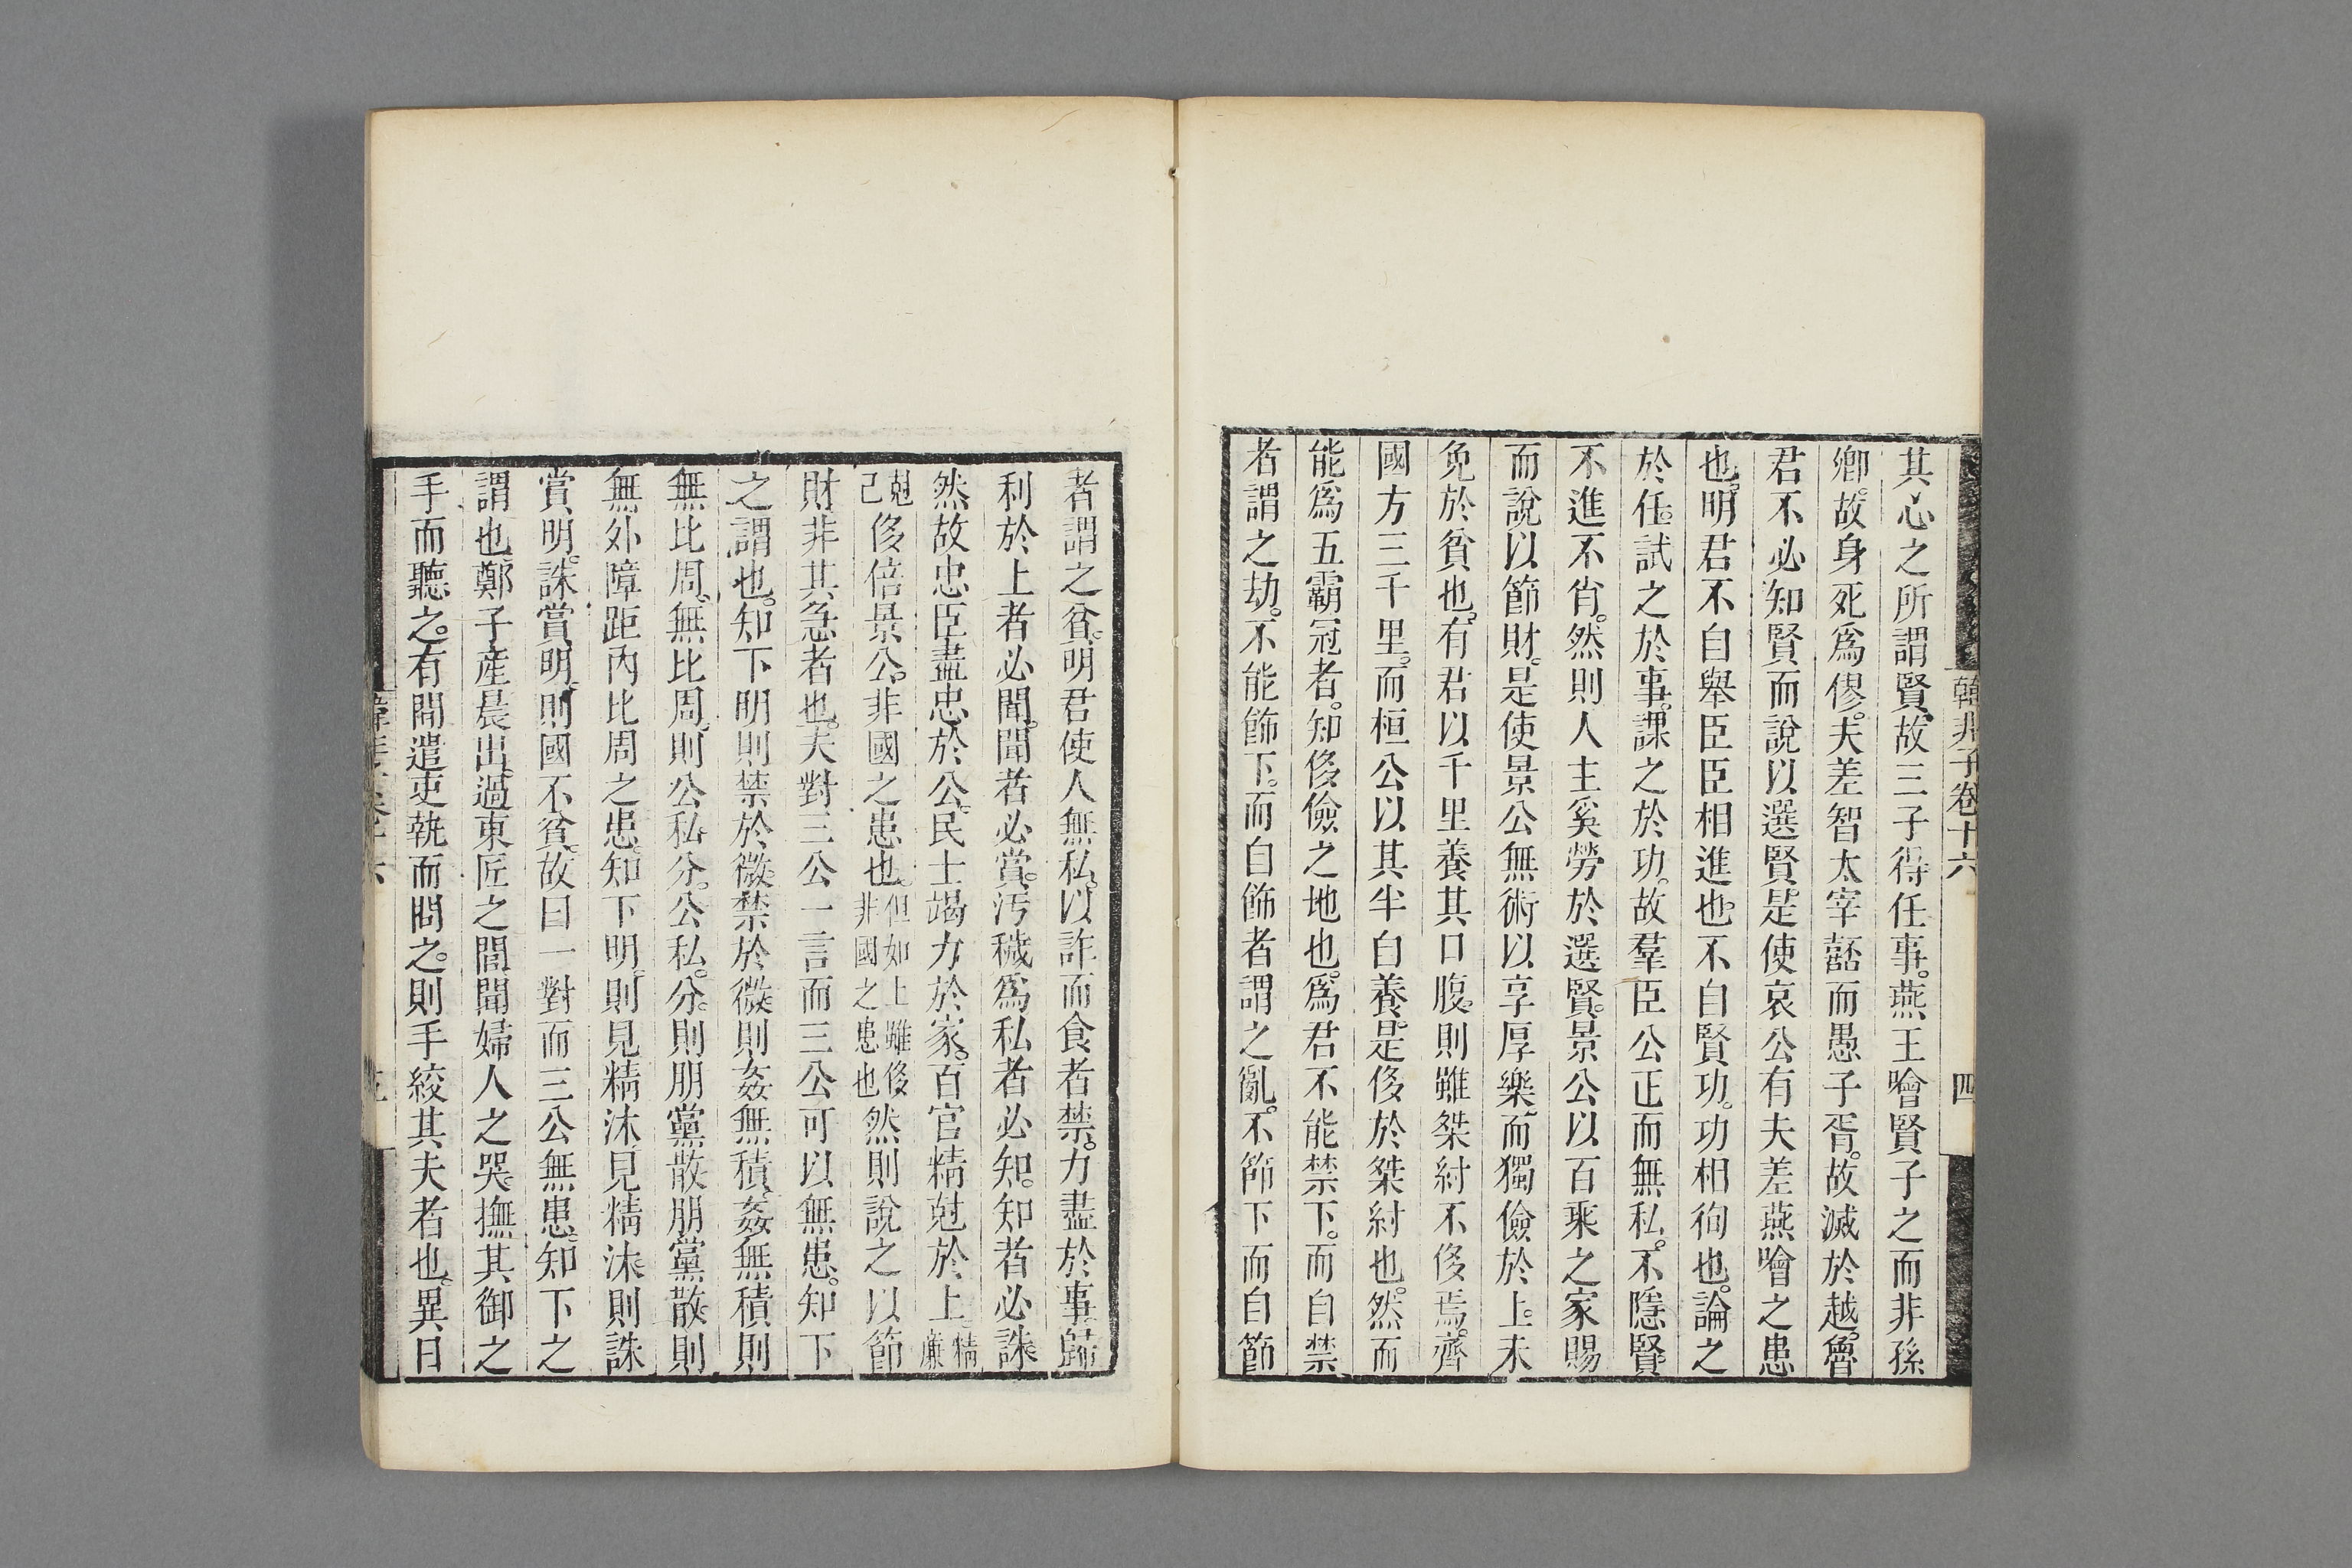 韓非子卷十六 四
其心之所謂賢故三子得任事。燕王噲賢子之而非孫
卿。故身死爲僇。夫差智太宰嚭而愚子胥。故滅於越。魯
君不必知賢而說以選賢。是使哀公有夫差燕噲之患
也。明君不自舉臣臣相進也。不自賢功。功相徇也。論之
於任。試之於事。課之於功。故羣臣公正而無私。不隱賢。
不進不肖。然則人主奚勞於選賢。景公以百乘之家賜
而說以節財。是使景公無術以享厚樂。而獨儉於上。未
免於貧也。有君以千里養其口腹。則雖桀紂不侈焉。齊
國方三千里。而桓公以其半自養。是侈於桀紂也。然而
能爲五霸冠者。知侈儉之地也。爲君不能禁下。而自禁
者謂之劫。不能飾下。而自飾者謂之亂。不節下而自節
者謂之貧。明君使人無私。以詐而食者禁。力盡於事歸
利於上者必聞。聞者必賞。汚穢爲私者必知。知者必誅。
然故忠臣盡忠於公。民士竭力於家。百官精尅於上。精廉
尅己侈倍景公。非國之患也。但如上雖侈非國之患也然則說之以節
財非其急者也。夫對三公一言而三公可以無患。知下
之謂也。知下明則禁於微。禁於微。則姦無積。姦無積則
無比周。無比周。則公私分。公私。分。則朋黨散。朋黨散。則
無外障距內比周之患。知下明。則見精沐。見精沐。則誅
賞明。誅賞明。則國不貧。故曰一對而三公無患。知下之
謂也。鄭子產晨出。過東匠之閭。聞婦人之哭。撫其御之
手而聽之。有閒遣吏執而問之。則手絞其夫者也。異日